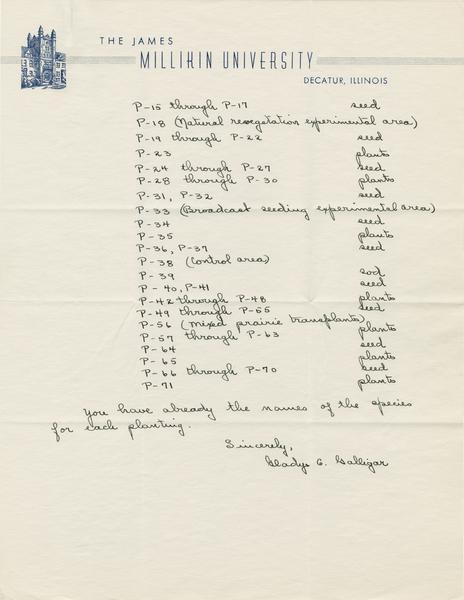 THE JAMES
MILLIKIN UNIVERSITY
DECATUR, ILLINOIS
P-15 through P-17 seed
P-18 (Natural revegetation experimental area)
P-19 through P-22 seed
P-23 plants
P-24 through P-27 seed
P-28 through P-30 plants
P-31, P-32 seed
P-33 (Broadcast seeding experimental area)
P-34 seed
P-35 plants
P-36, P-37 seed
P-38 (Control area)
P-39 sod
P-40, P-41 seed
P-42 through P-48 plants
P-49 through P-55 seed
P-56 (mixed prairie transplants)
P-57 through P-63 plants
P-64 seed
P-65 plants
P-66 through P-70 seed
P-71 plants
You have already the names of the species
for each planting.
Sincerely,
Gladys C. Galligar